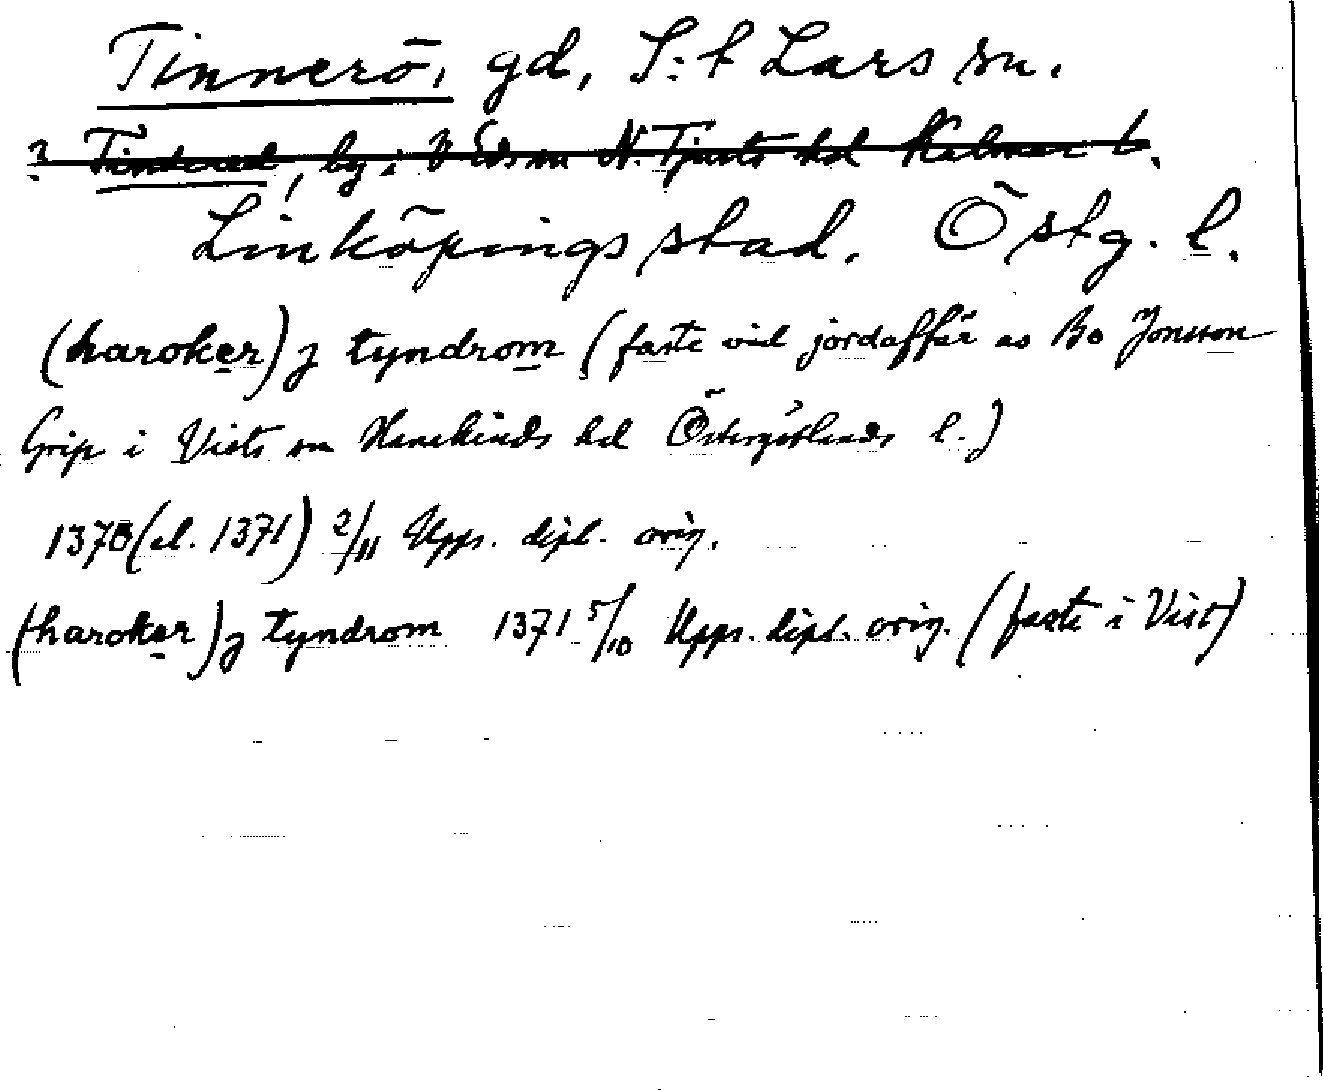 Tinnerö, gd, S:t Lars sn.
? Tindered, by i V Eds sn N. Tjusts hd Kalmar l.
Linköpings stad. Östg. l.
(haroker) ʒ tyndrom (faste vid jordaffär av Bo Jonsson
Grip i Vists sn Hanekinds hd Östergötlands l.)
1370 (el. 1371) 2/11 Upps. dipl. orig.
(haroker) ʒ tyndrom 1371 5/10 Upps. dipl. orig. (faste i Vist)